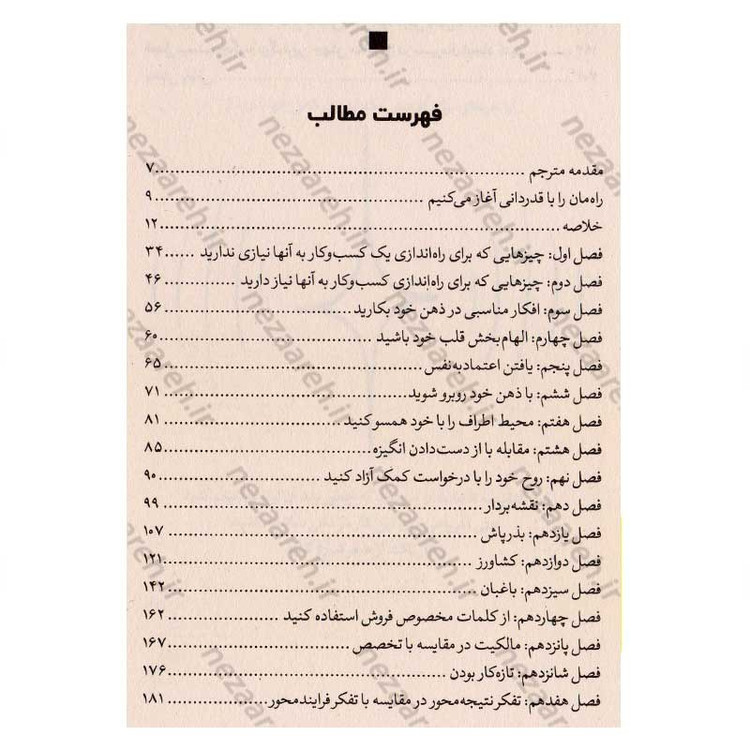 فهرست مطالب
مقدمه مترجم ........ ۷
راه‌مان را با قدردانی آغاز می‌کنیم ........ ۹
خلاصه ........ ۱۲
فصل اول: چیزهایی که برای راه‌اندازی یک کسب‌وکار به آنها نیازی ندارید ...... ۳۴
فصل دوم: چیزهایی که برای راه‌اندازی کسب‌وکار به آنها نیاز دارید ........ ۴۶
فصل سوم: افکار مناسبی در ذهن خود بکارید ........ ۵۶
فصل چهارم: الهام‌بخش قلب خود باشید ........ ۶۰
فصل پنجم: یافتن اعتمادبه‌نفس ........ ۶۵
فصل ششم: با ذهن خود روبرو شوید ........ ۷۱
فصل هفتم: محیط اطراف را با خود همسو کنید ........ ۸۱
فصل هشتم: مقابله با از دست‌دادن انگیزه ........ ۸۵
فصل نهم: روح خود را با درخواست کمک آزاد کنید ........ ۹۰
فصل دهم: نقشه‌بردار ........ ۹۹
فصل یازدهم: بذرپاش ........ ۱۰۷
فصل دوازدهم: کشاورز ........ ۱۲۱
فصل سیزدهم: باغبان ........ ۱۴۲
فصل چهاردهم: از کلمات مخصوص فروش استفاده کنید ........ ۱۶۲
فصل پانزدهم: مالکیت در مقایسه با تخصص ........ ۱۶۷
فصل شانزدهم: تازه‌کار بودن ........ ۱۷۶
فصل هفدهم: تفکر نتیجه‌محور در مقایسه با تفکر فرایندمحور ........ ۱۸۱
nezaareh.ir